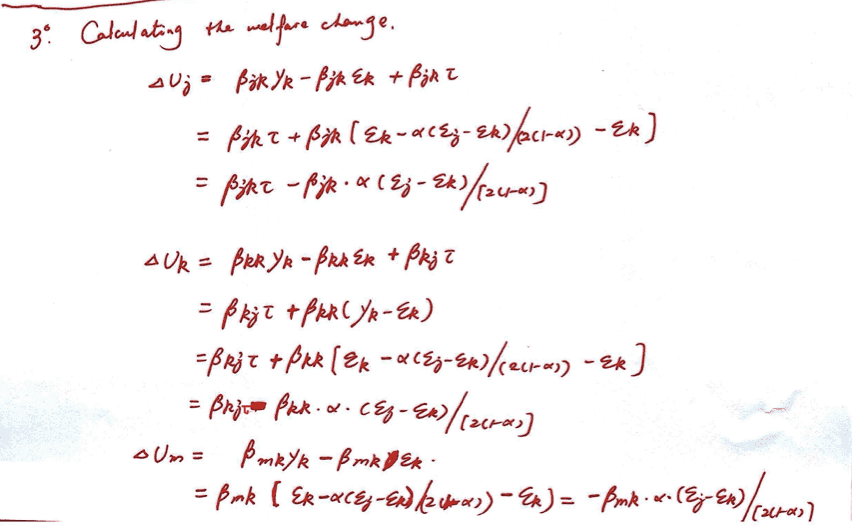 3°. Calculating the welfare change.
△Uj = βjk yk - βjk εk + βjk τ
= βjk τ + βjk [ εk - α(εj - εk)/(2(1-α)) - εk ]
= βjk τ - βjk · α (εj - εk)/[2(1-α)]
△Uk = βkk yk - βkk εk + βkj τ
= βkj τ + βkk ( yk - εk)
= βkj τ + βkk [ εk - α(εj - εk)/(2(1-α)) - εk ]
= βkj τ - βkk · α · (εj - εk)/[2(1-α)]
△Um = βmk yk - βmk εk .
= βmk [ εk - α(εj - εk)/(2(1-α)) - εk ) = - βmk · α · (εj - εk)/[2(1-α)]